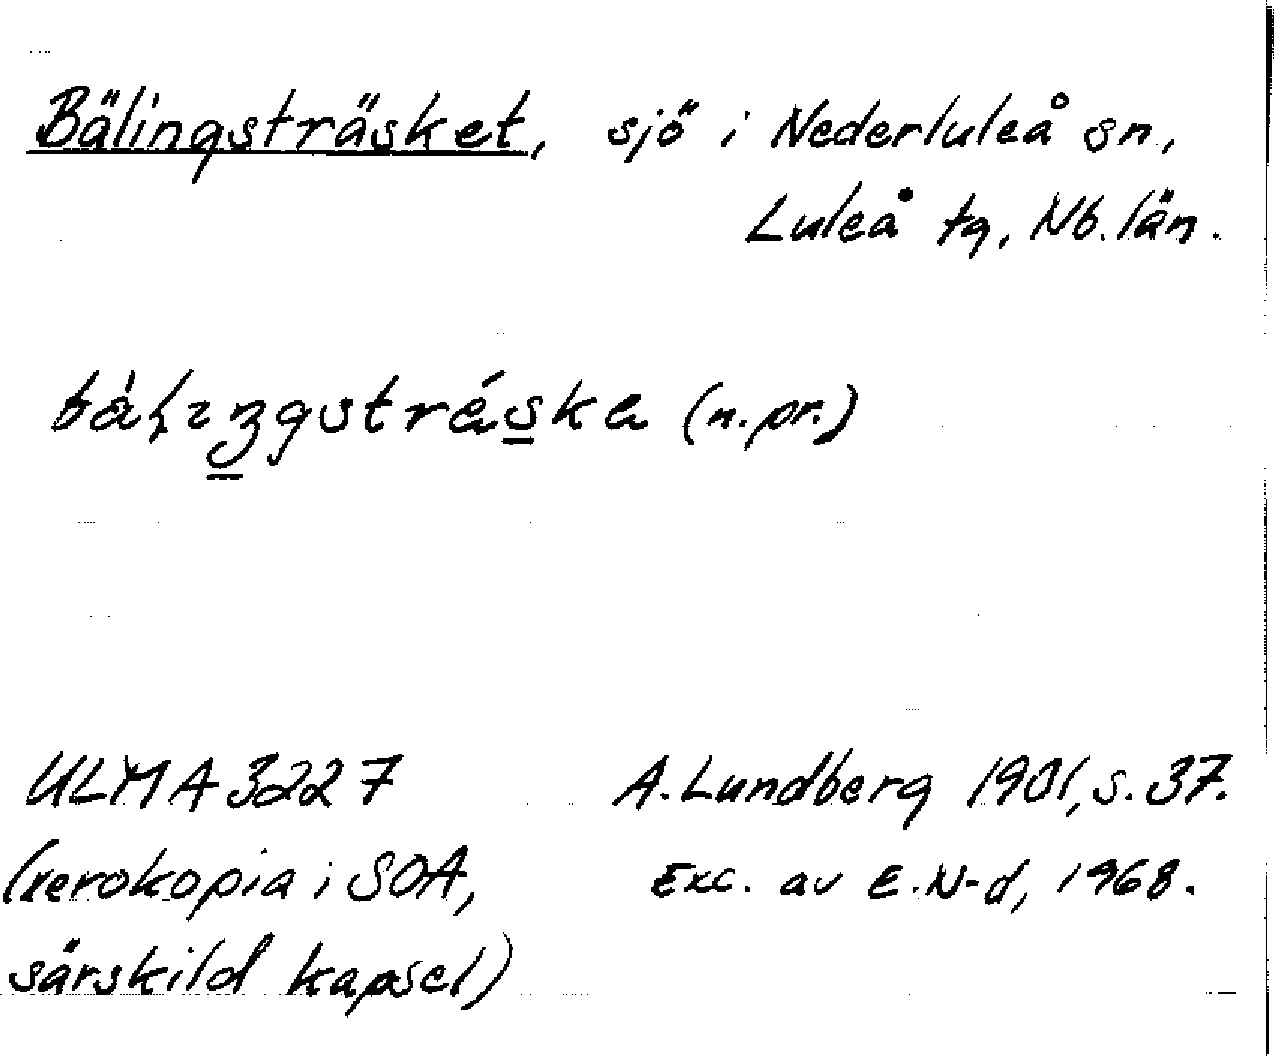 Bälingsträsket, sjö i Nederluleå sn,
Luleå tg, Nb. län.
(n. pr.)
ULMA 3227
(xerokopia i SOA,
särskild kapsel)
A. Lundberg 1901, s. 37.
Exc. av E. N-d, 1968.